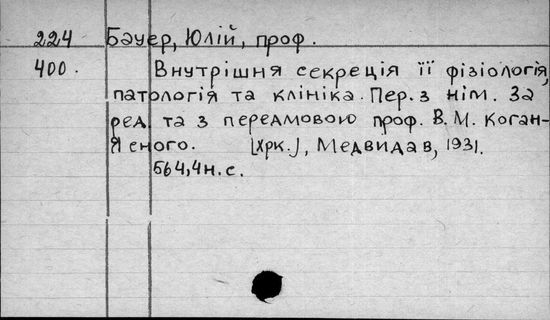 224 Бауер, Юлій, проф.
400. Внутрішня секреція її фізіологія,
патологія та клініка. Пер. з нім. За
ред. та з передмовою проф. В. М. Коган-
Ясного. [Хрк.], Медвидав, 1931.
564,4н. с.